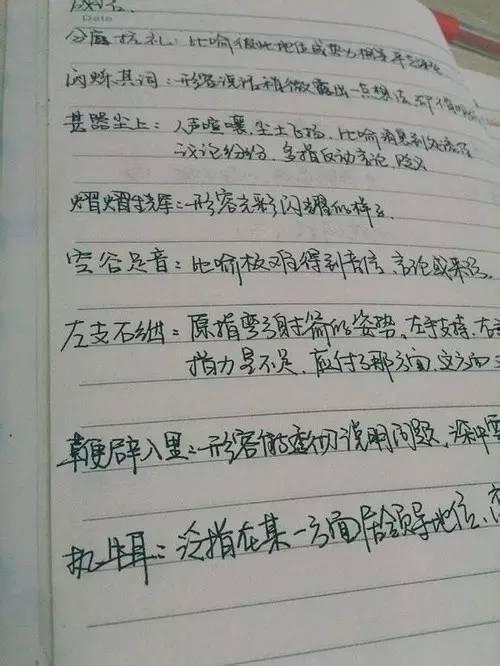 成语.
Date
分庭抗礼: 比喻彼此地位或势力相等平
闪烁其词: 形容说话稍微露出一点想法,却
甚嚣尘上: 人声喧嚷,尘土飞扬,比喻消息到处流传
议论纷纷,多指反动言论,贬义
熠熠生辉: 形容光彩闪耀的样子
空谷足音: 比喻极难得到音信、言论或来访.
左支右绌: 原指弯弓射箭的姿势,左手支持,右
指力量不足,应付了那方面,这方面
鞭辟入里: 形容能透彻说明问题,深中
执牛耳: 泛指在某一方面居领导地位,